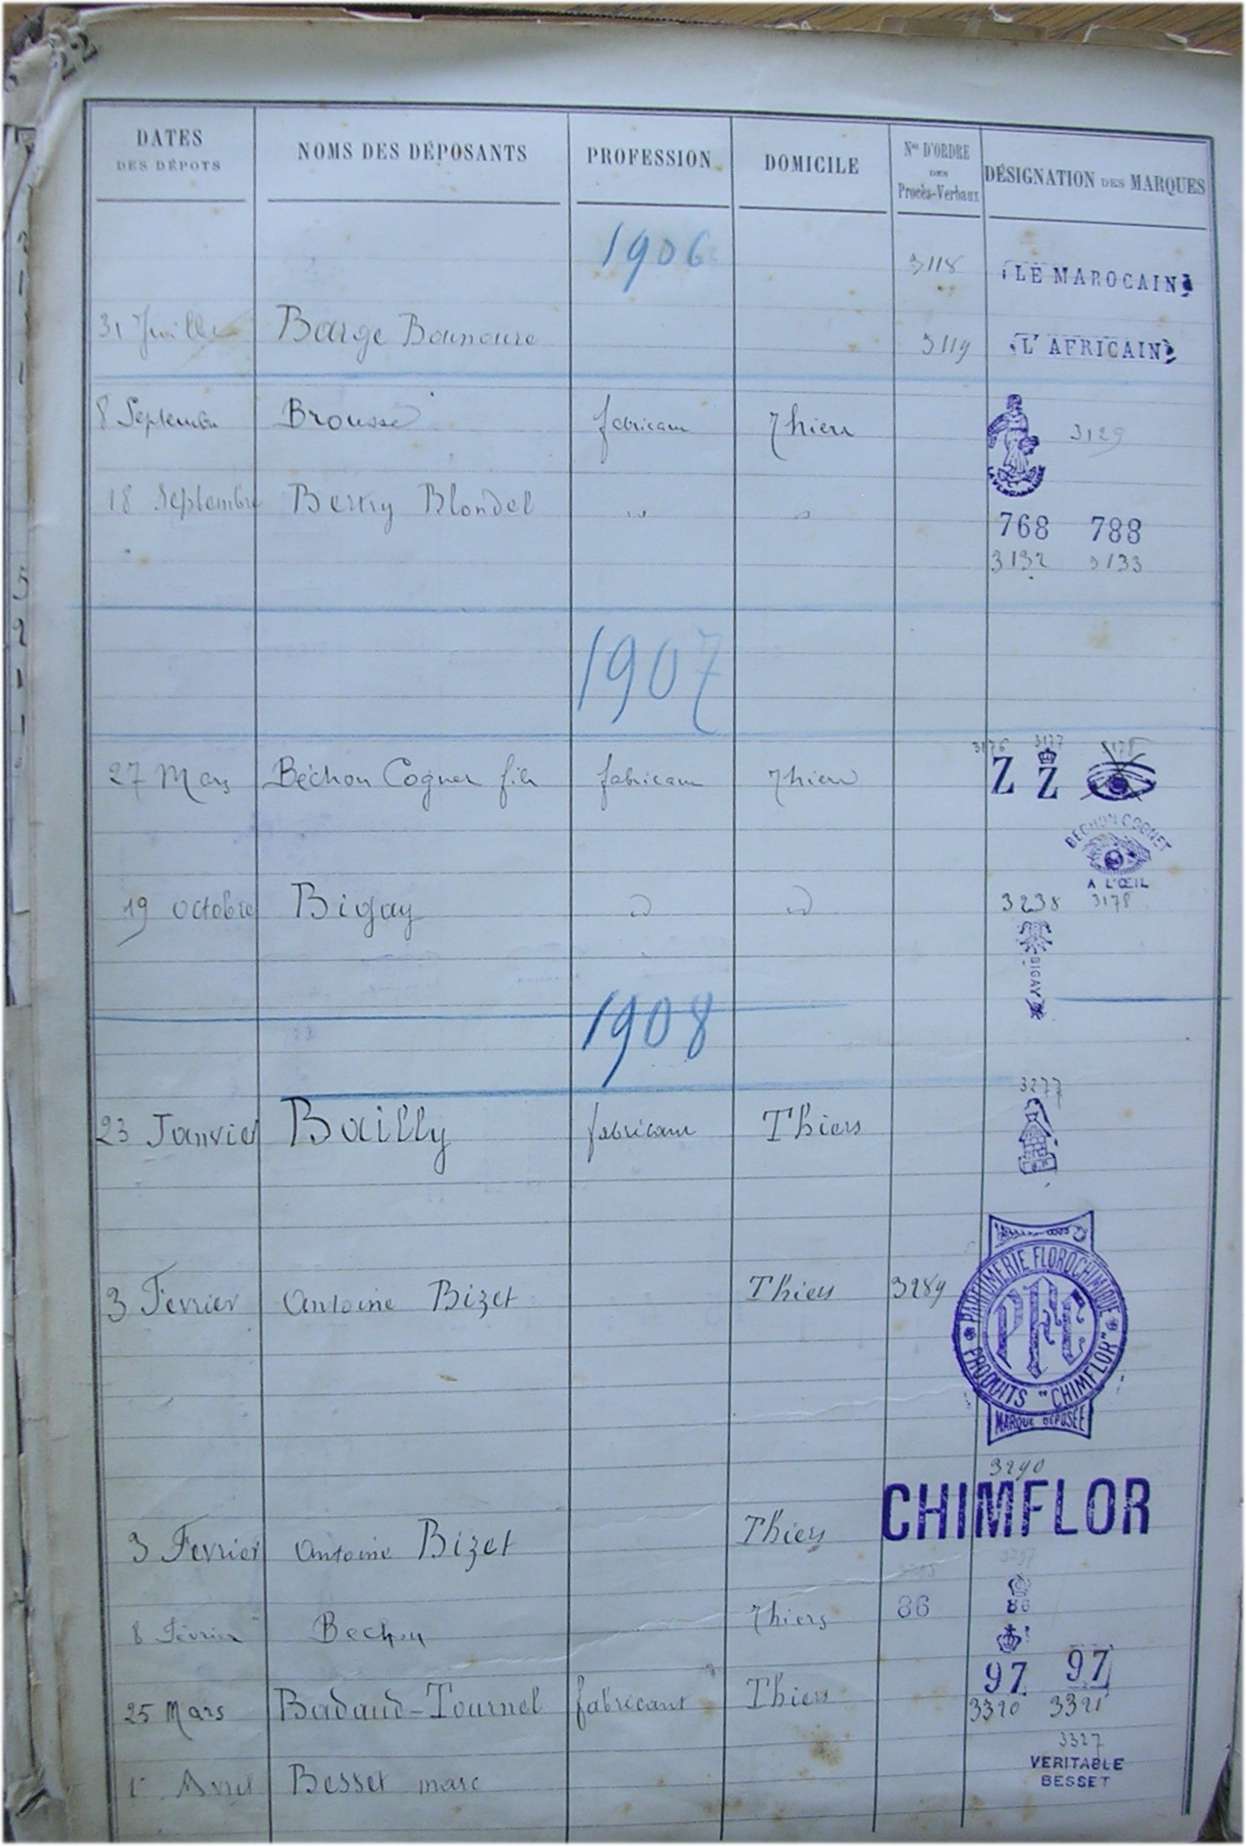 22
DATES DES DÉPOTS NOMS DES DÉPOSANTS PROFESSION DOMICILE Nos D'ORDRE DES Procès-Verbaux DÉSIGNATION DES MARQUES
1906 3118 LE MAROCAIN
31 Juillet Barge Bounoure 3119 L'AFRICAIN
8 Septembre Brousse fabricant Thiers 3129
18 Septembre Berry Blondel " " 768 788
3132 3133
1907
3176 3177 3175
27 Mars Béchon Cognet fils fabricant Thiers Z Z
BECHON COGNET
A L'ŒIL
19 octobre Bigay 3238 3178
BIGAY
1908
3277
23 Janvier Bailly fabricant Thiers
3 Fevrier Antoine Bizet Thiers 3289 PARFUMERIE FLOROCHIMIQUE
PFC
PRODUITS "CHIMFLOR"
MARQUE DÉPOSÉE
3290
3 Fevrier Antoine Bizet Thiers CHIMFLOR
8 Février Bechon Thiers 86 86
97 97
25 Mars Badaud-Tournel fabricant Thiers 3320 3321
3327
1er Avril Besset marc VERITABLE
BESSET